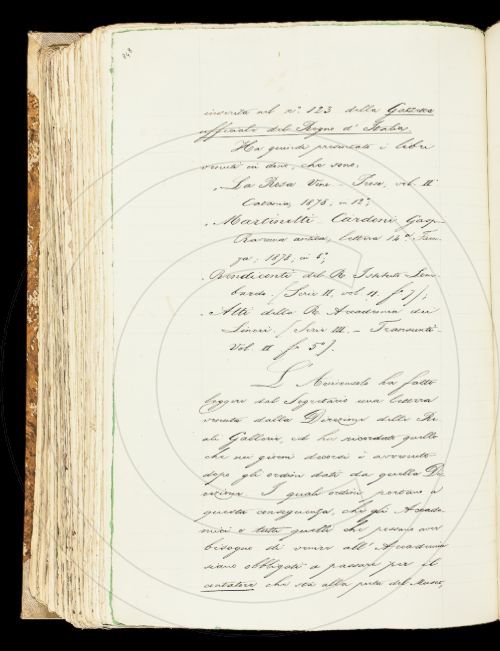 248
inserita nel n.º 123 della Gazzetta
officiale del Regno d'Italia.
Ha quindi presentato i libri
venuti in dono, che sono.
La Rosa Vinc. – vol. II
Catania, 1878, in 12º;
Martinetti Cardoni Gasp.
Ravenna antica, lettera 14.ª Faen-
za; 1878, in 8º;
Rendiconti del R. Istituto Lom-
bardo. [Serie II, vol. 11, fº];
Atti della R. Accademia dei
Lincei. [Serie III. – Transunti –
Vol. II fº 5º].
L'Accademia ha fatto
leggere dal Segretario una lettera
venuta dalla Direzione delle Re-
ali Gallerie, ed ha ricordato quello
che nei giorni decorsi è avvenuto
dopo gli ordini dati da quella Di-
rezione. I quali ordini portano a
questa conseguenza, che gli Accade-
mici e tutti quelli che possono aver
bisogno di venire all'Accademia
siano obbligati a passare per il
contatore che sta alla porta del Museo,